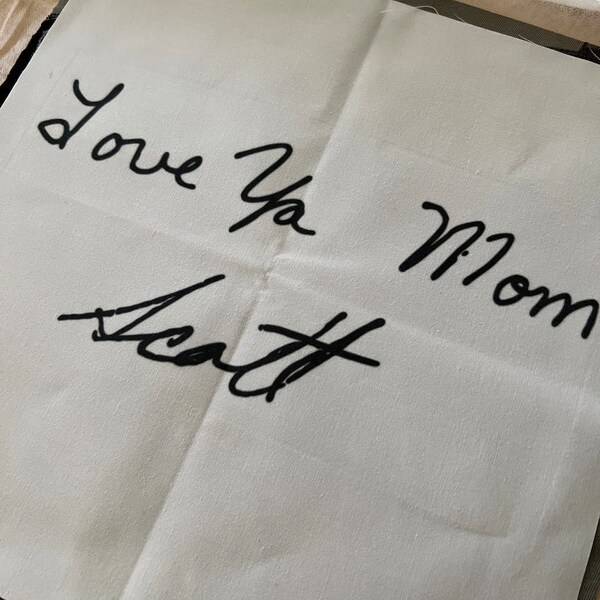 Love Ya Mom
Scott